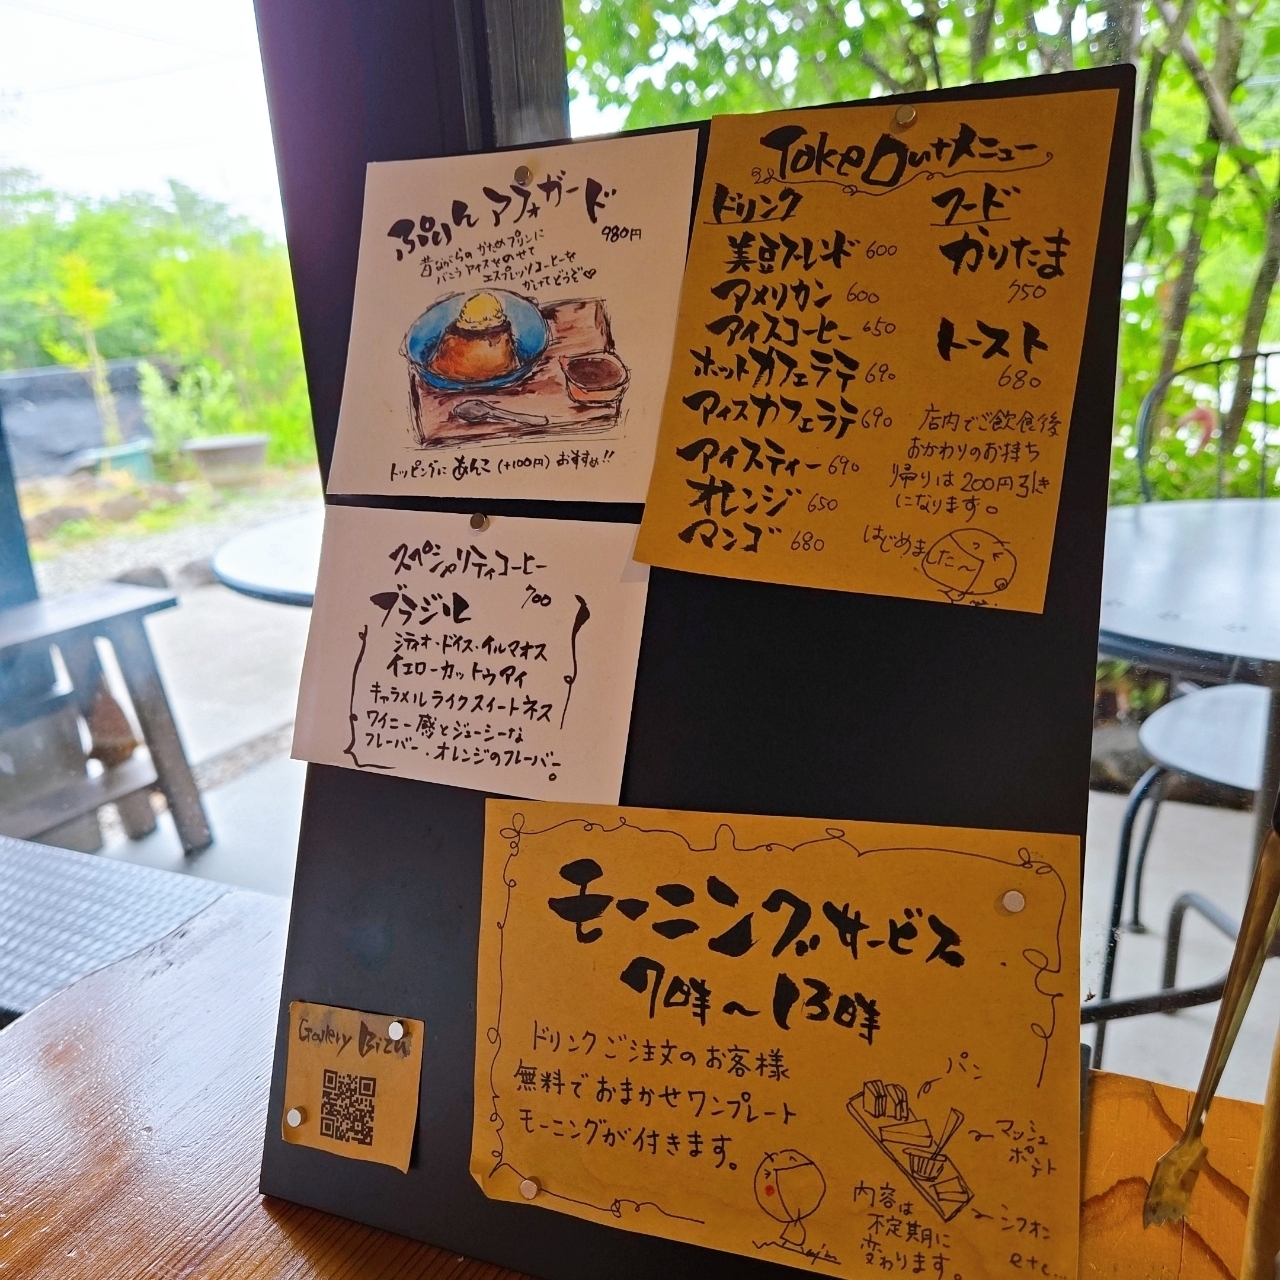 ぷりん アフォガード
980円
昔ながらの かためプリンに
バニラアイスをのせて
エスプレッソコーヒーを
かけてどうぞ♡
トッピングに あんこ (+100円) おすすめ!!
Take Out メニュー
ドリンク
美豆ブレンド 600
アメリカン 600
アイスコーヒー 650
ホットカフェラテ 690
アイスカフェラテ 690
アイスティー 690
オレンジ 650
マンゴ 680
フード
かりたま
750
トースト
680
店内でご飲食後
おかわりのお持ち
帰りは200円引き
になります。
はじめました〜
スペシャリティコーヒー
700
ブラジル
シティオ・ドイス・イルマオス
イエローカットゥアイ
キャラメルライクスイートネス
ワイニー感とジューシーな
フレーバー・オレンジのフレーバー。
モーニングサービス
7時〜13時
ドリンクご注文のお客様
無料でおまかせワンプレート
モーニングが付きます。
パン
マッシュ
ポテト
シフォン
etc...
内容は
不定期に
変わります。
Gallery Bizu